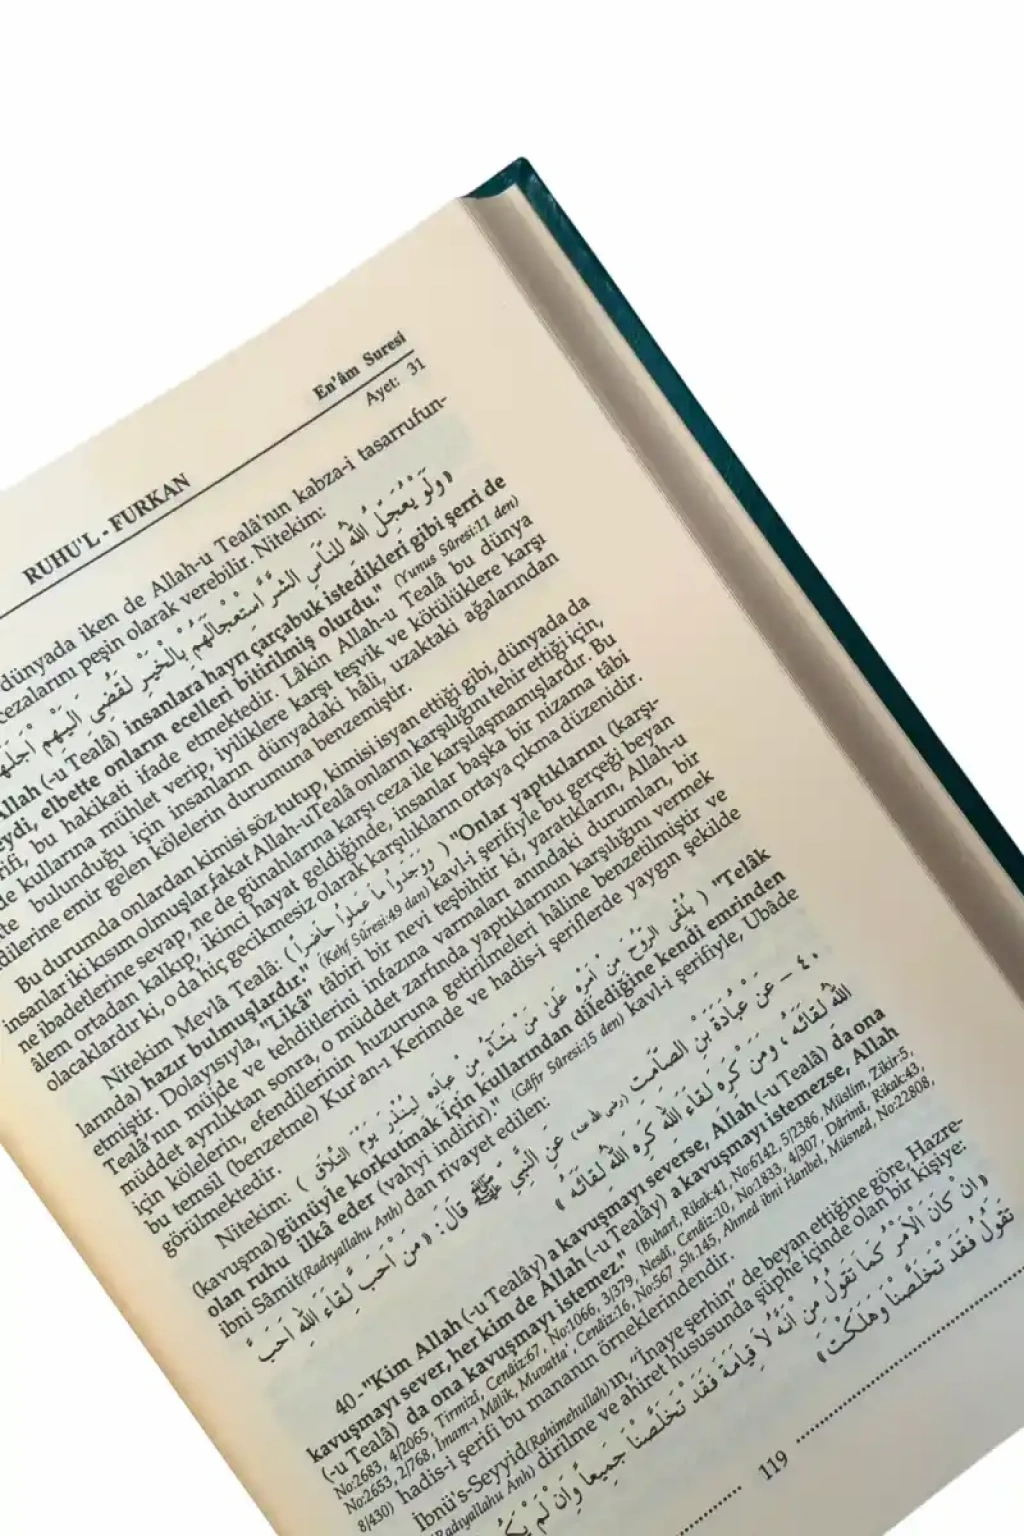 RUHU'L - FURKAN
En'âm Suresi
Ayet: 31
dünyada iken de Allah-u Tealâ'nın kabza-i tasarrufun-
cezalarını peşin olarak verebilir. Nitekim:
«وَلَوْ يُعَجِّلُ اللهُ لِلنَّاسِ الشَّرَّ اسْتِعْجَالَهُمْ بِالْخَيْرِ لَقُضِىَ اِلَيْهِمْ اَجَلُهُمْ
Allah (-u Tealâ) insanlara hayrı çarçabuk istedikleri gibi şerri de
elbette onların ecelleri bitirilmiş olurdu." (Yunus Sûresi:11 den)
bu hakikati ifade etmektedir. Lâkin Allah-u Tealâ bu dünya
kullarına mühlet verip, iyiliklere karşı teşvik ve kötülüklere karşı
bulunduğu için insanların dünyadaki hâli, uzaktaki ağalarından
emir gelen kölelerin durumuna benzemiştir.
Bu durumda onlardan kimisi söz tutup, kimisi isyan ettiği gibi, dünyada da
insanlar iki kısım olmuşlar, fakat Allah-u Tealâ onların karşılığını tehir ettiği için,
ne ibadetlerine sevap, ne de günahlarına karşı ceza ile karşılaşmamışlardır. Bu
âlem ortadan kalkıp, ikinci hayat geldiğinde, insanlar başka bir nizama tâbi
olacaklardır ki, o da hiç gecikmesiz olarak karşılıkların ortaya çıkma düzenidir.
Nitekim Mevlâ Tealâ: ( وَوَجَدُوا مَا عَمِلُوا حَاضِرًا ) "Onlar yaptıklarını (karşı-
larında) hazır bulmuşlardır." (Kehf Sûresi:49 dan) kavl-i şerifiyle bu gerçeği beyan
etmiştir. Dolayısıyla, "Likâ" tâbiri bir nevi teşbihtir ki, yaratıkların, Allah-u
Tealâ'nın müjde ve tehditlerini infazına varmaları anındaki durumları, bir
müddet ayrılıktan sonra, o müddet zarfında yaptıklarının karşılığını vermek
için kölelerin, efendilerinin huzuruna getirilmeleri hâline benzetilmiştir ve
bu temsil (benzetme) Kur'an-ı Kerimde ve hadis-i şeriflerde yaygın şekilde
görülmektedir.
Nitekim: ( يُلْقِى الرُّوحَ مِنْ اَمْرِهِ عَلَى مَنْ يَشَاءُ مِنْ عِبَادِهِ لِيُنْذِرَ يَوْمَ التَّلاَقِ ) "Telâk
(kavuşma) günüyle korkutmak için kullarından dilediğine kendi emrinden
olan ruhu ilkâ eder (vahyi indirir)." (Gâfir Sûresi:15 den) kavl-i şerifiyle, Ubâde
ibni Sâmit(Radıyallahu Anh) dan rivayet edilen:
٤٠ – عَنْ عُبَادَةَ بْنِ الصَّامِتِ (رضى الله عنه) عَنِ النَّبِيِّ ﷺ قَالَ: «مَنْ اَحَبَّ لِقَاءَ اللهِ اَحَبَّ
اللهُ لِقَائَهُ، وَمَنْ كَرِهَ لِقَاءَ اللهِ كَرِهَ اللهُ لِقَائَهُ»
40 - "Kim Allah (-u Tealây) a kavuşmayı severse, Allah (-u Tealâ) da ona
kavuşmayı sever, her kim de Allah (-u Tealây) a kavuşmayı istemezse, Allah
(-u Tealâ) da ona kavuşmayı istemez." (Buharî, Rikak:41, No:6142, 5/2386, Müslim, Zikir:5,
No:2683, 4/2065, Tirmizî, Cenâiz:67, No:1066, 3/379, Nesâî, Cenâiz:10, No:1833, 4/307, Dârimî, Rikak:43,
No:2653, 2/768, İmam-ı Mâlik, Muvatta', Cenâiz:16, No:567, Sh.145, Ahmed ibni Hanbel, Müsned, No:22808,
8/430) hadis-i şerifi bu mananın örneklerindendir.
İbnü's-Seyyid(Rahimehullah)ın, "İnaye şerhin" de beyan ettiğine göre, Hazre-
(Radıyallahu Anh) dirilme ve ahiret hususunda şüphe içinde olan bir kişiye:
«اِنْ كَانَ الْاَمْرُ كَمَا تَقُولُ مِنْ اَنَّهُ لاَ قِيَامَةَ فَقَدْ تَخَلَّصْنَا جَمِيعاً وَاِنْ لَمْ
تَقُولُ فَقَدْ تَخَلَّصْنَا وَهَلَكْتَ»
119